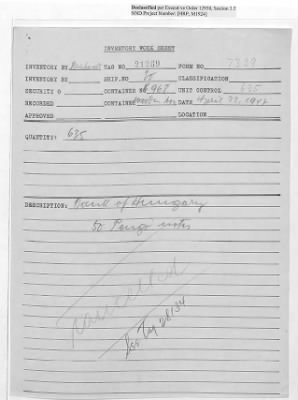 Declassified per Executive Order 12958, Section 3.5
NND Project Number: [HRP, M1924]
INVENTORY WORK SHEET
INVENTORY BY TAG NO. 21289 FORM NO. 7389
INVENTORY BY SHIP.NO. CLASSIFICATION
SECURITY O CONTAINER NO 968 UNIT CONTROL 635
RECORDED CONTAINER wooden box DATE April 22, 1948
APPROVED LOCATION
QUANTITY: 635
DESCRIPTION: Bank of Hungary
50 Pengö notes
cancelled
See Tag 28134